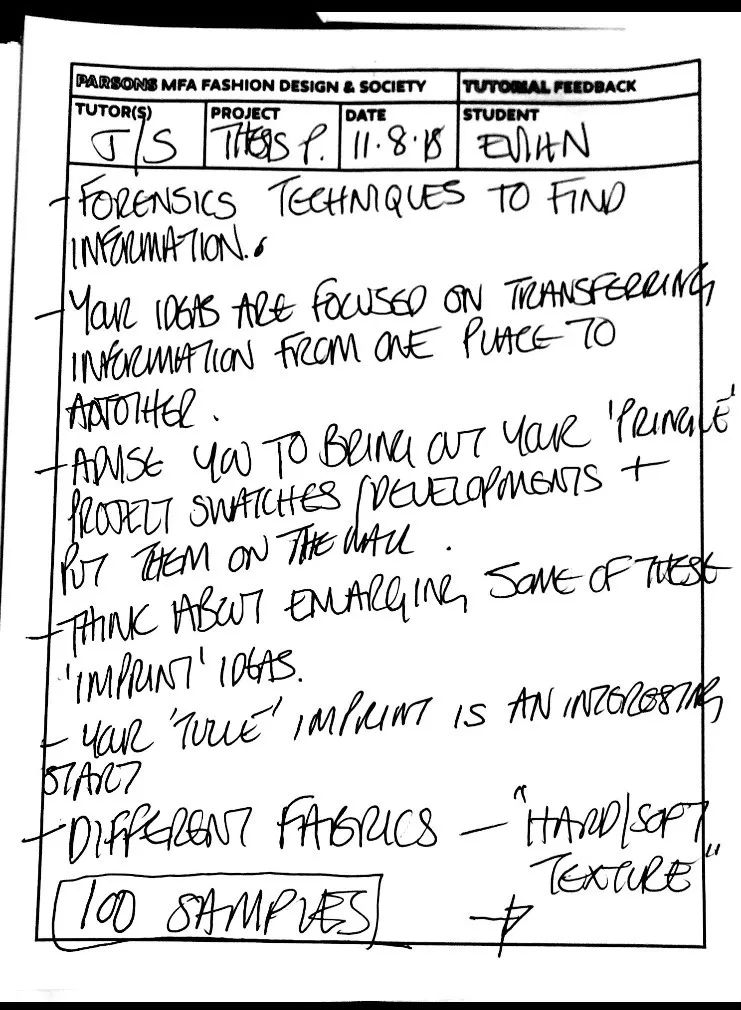 PARSONS MFA FASHION DESIGN & SOCIETY TUTORIAL FEEDBACK
TUTOR(S) PROJECT DATE STUDENT
J/S THESIS P. 11.8.18 EVIAN
- FORENSICS TECHNIQUES TO FIND
INFORMATION.
- YOUR IDEAS ARE FOCUSED ON TRANSFERRING
INFORMATION FROM ONE PLACE TO
ANOTHER.
- ADVISE YOU TO BRING OUT YOUR 'PRINGLE'
PROJECT SWATCHES/DEVELOPMENTS +
PUT THEM ON THE WALL.
- THINK ABOUT ENLARGING SOME OF THESE
'IMPRINT' IDEAS.
- YOUR 'TULLE' IMPRINT IS AN INTERESTING
START
- DIFFERENT FABRICS — "HARD/SOFT
TEXTURE"
100 SAMPLES →